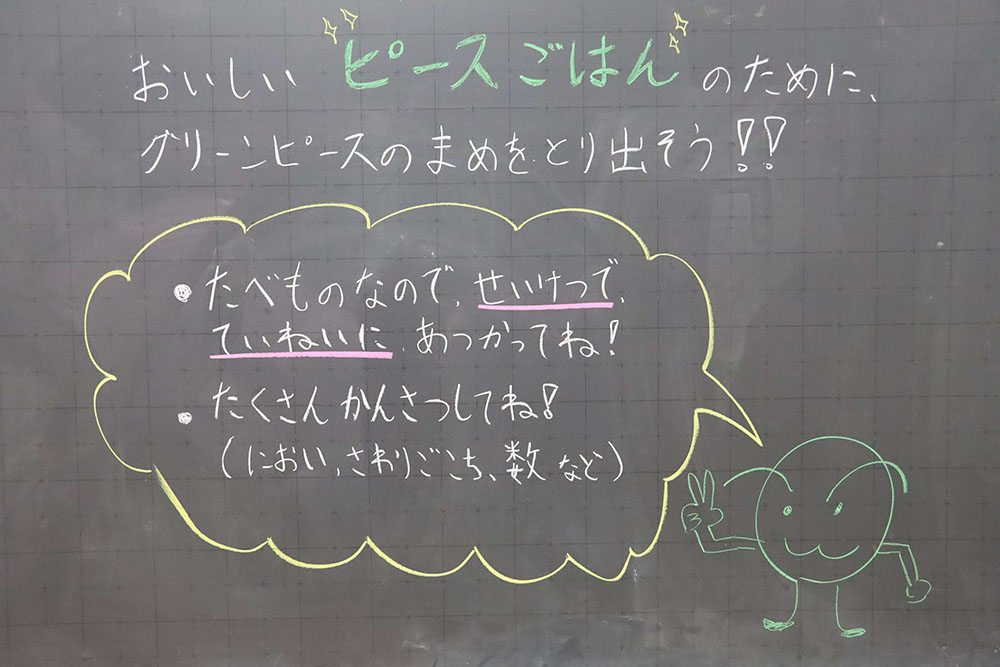 おいしい ピースごはん のために、
グリーンピースのまめをとり出そう!!
・たべものなので、せいけつで、
ていねいに、あつかってね!
・たくさんかんさつしてね!
(におい、さわりごこち、数など)